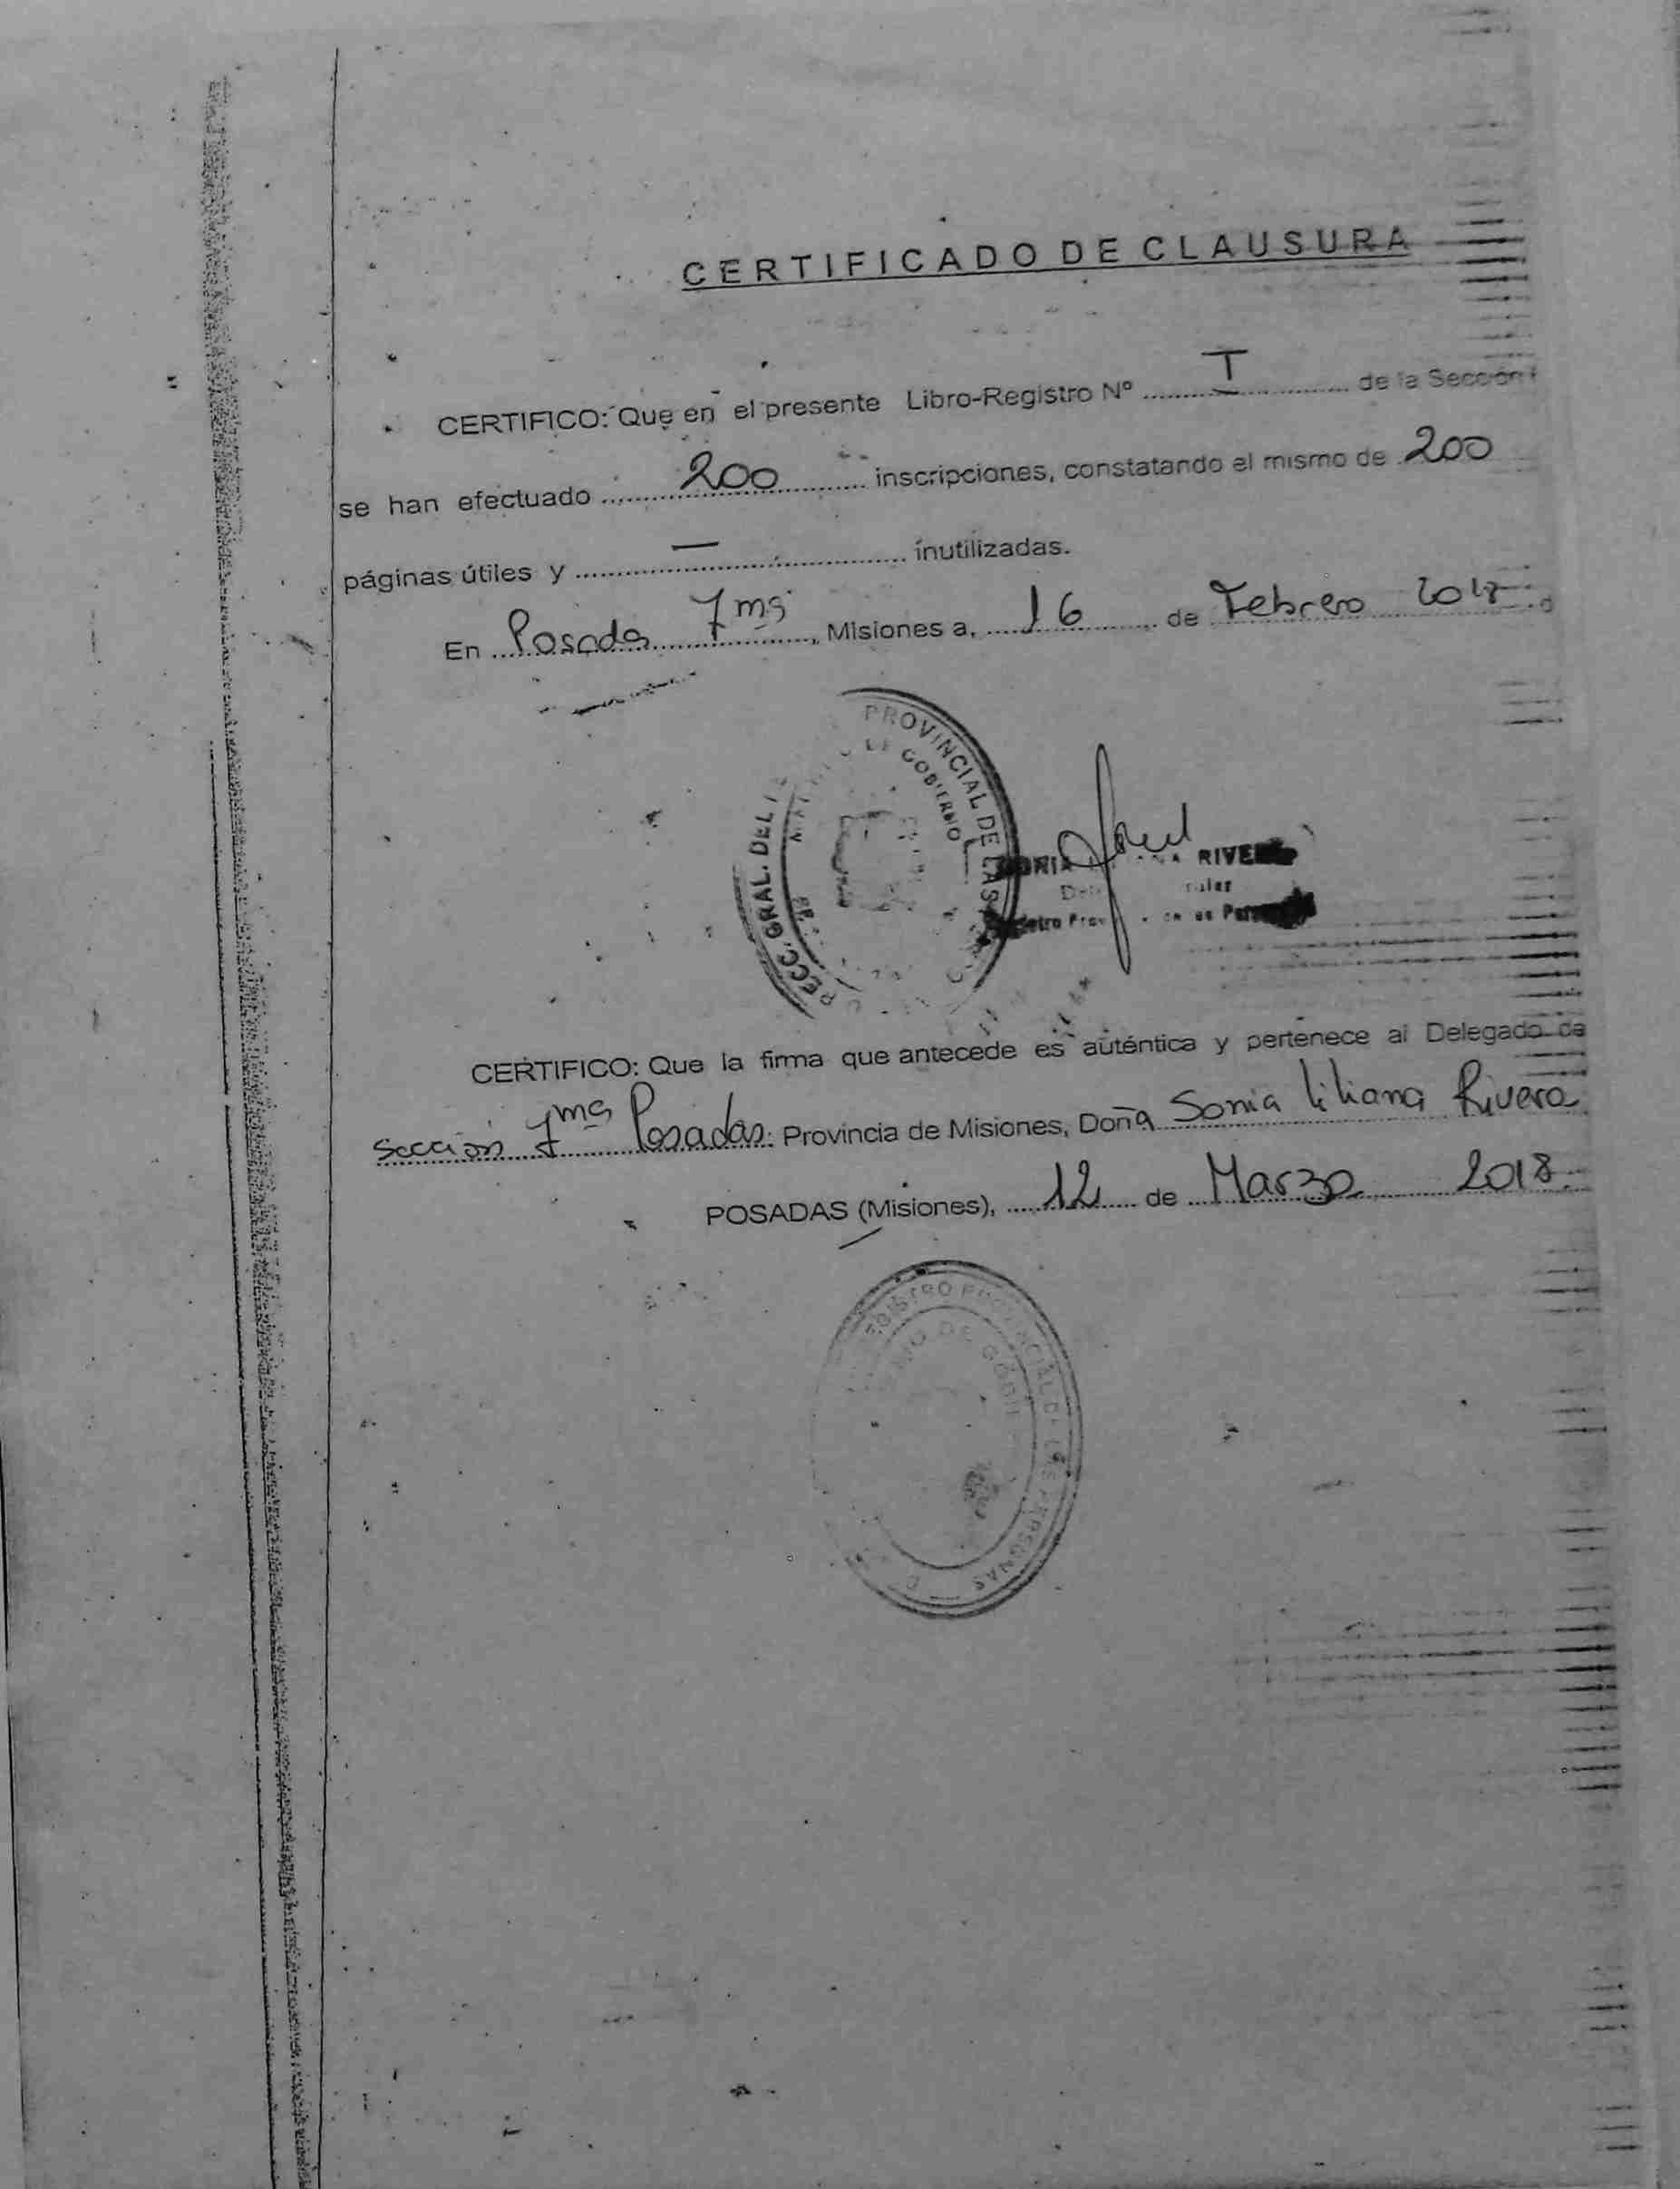 CERTIFICADO DE CLAUSURA
CERTIFICO: Que en el presente Libro-Registro Nº I de la Sección
se han efectuado 200 inscripciones, constatando el mismo de 200
páginas útiles y — inutilizadas.
En Posadas 7ma, Misiones a, 16 de Febrero 2018
PROVINCIAL DE LAS
GRAL. DEL
DE GOBIERNO
RIVERA
CERTIFICO: Que la firma que antecede es auténtica y pertenece al Delegado de
Sección 7ma Posadas. Provincia de Misiones, Doña Sonia Liliana Rivera
POSADAS (Misiones), 12 de Marzo 2018.
REGISTRO PROVINCIAL DE LAS PERSONAS